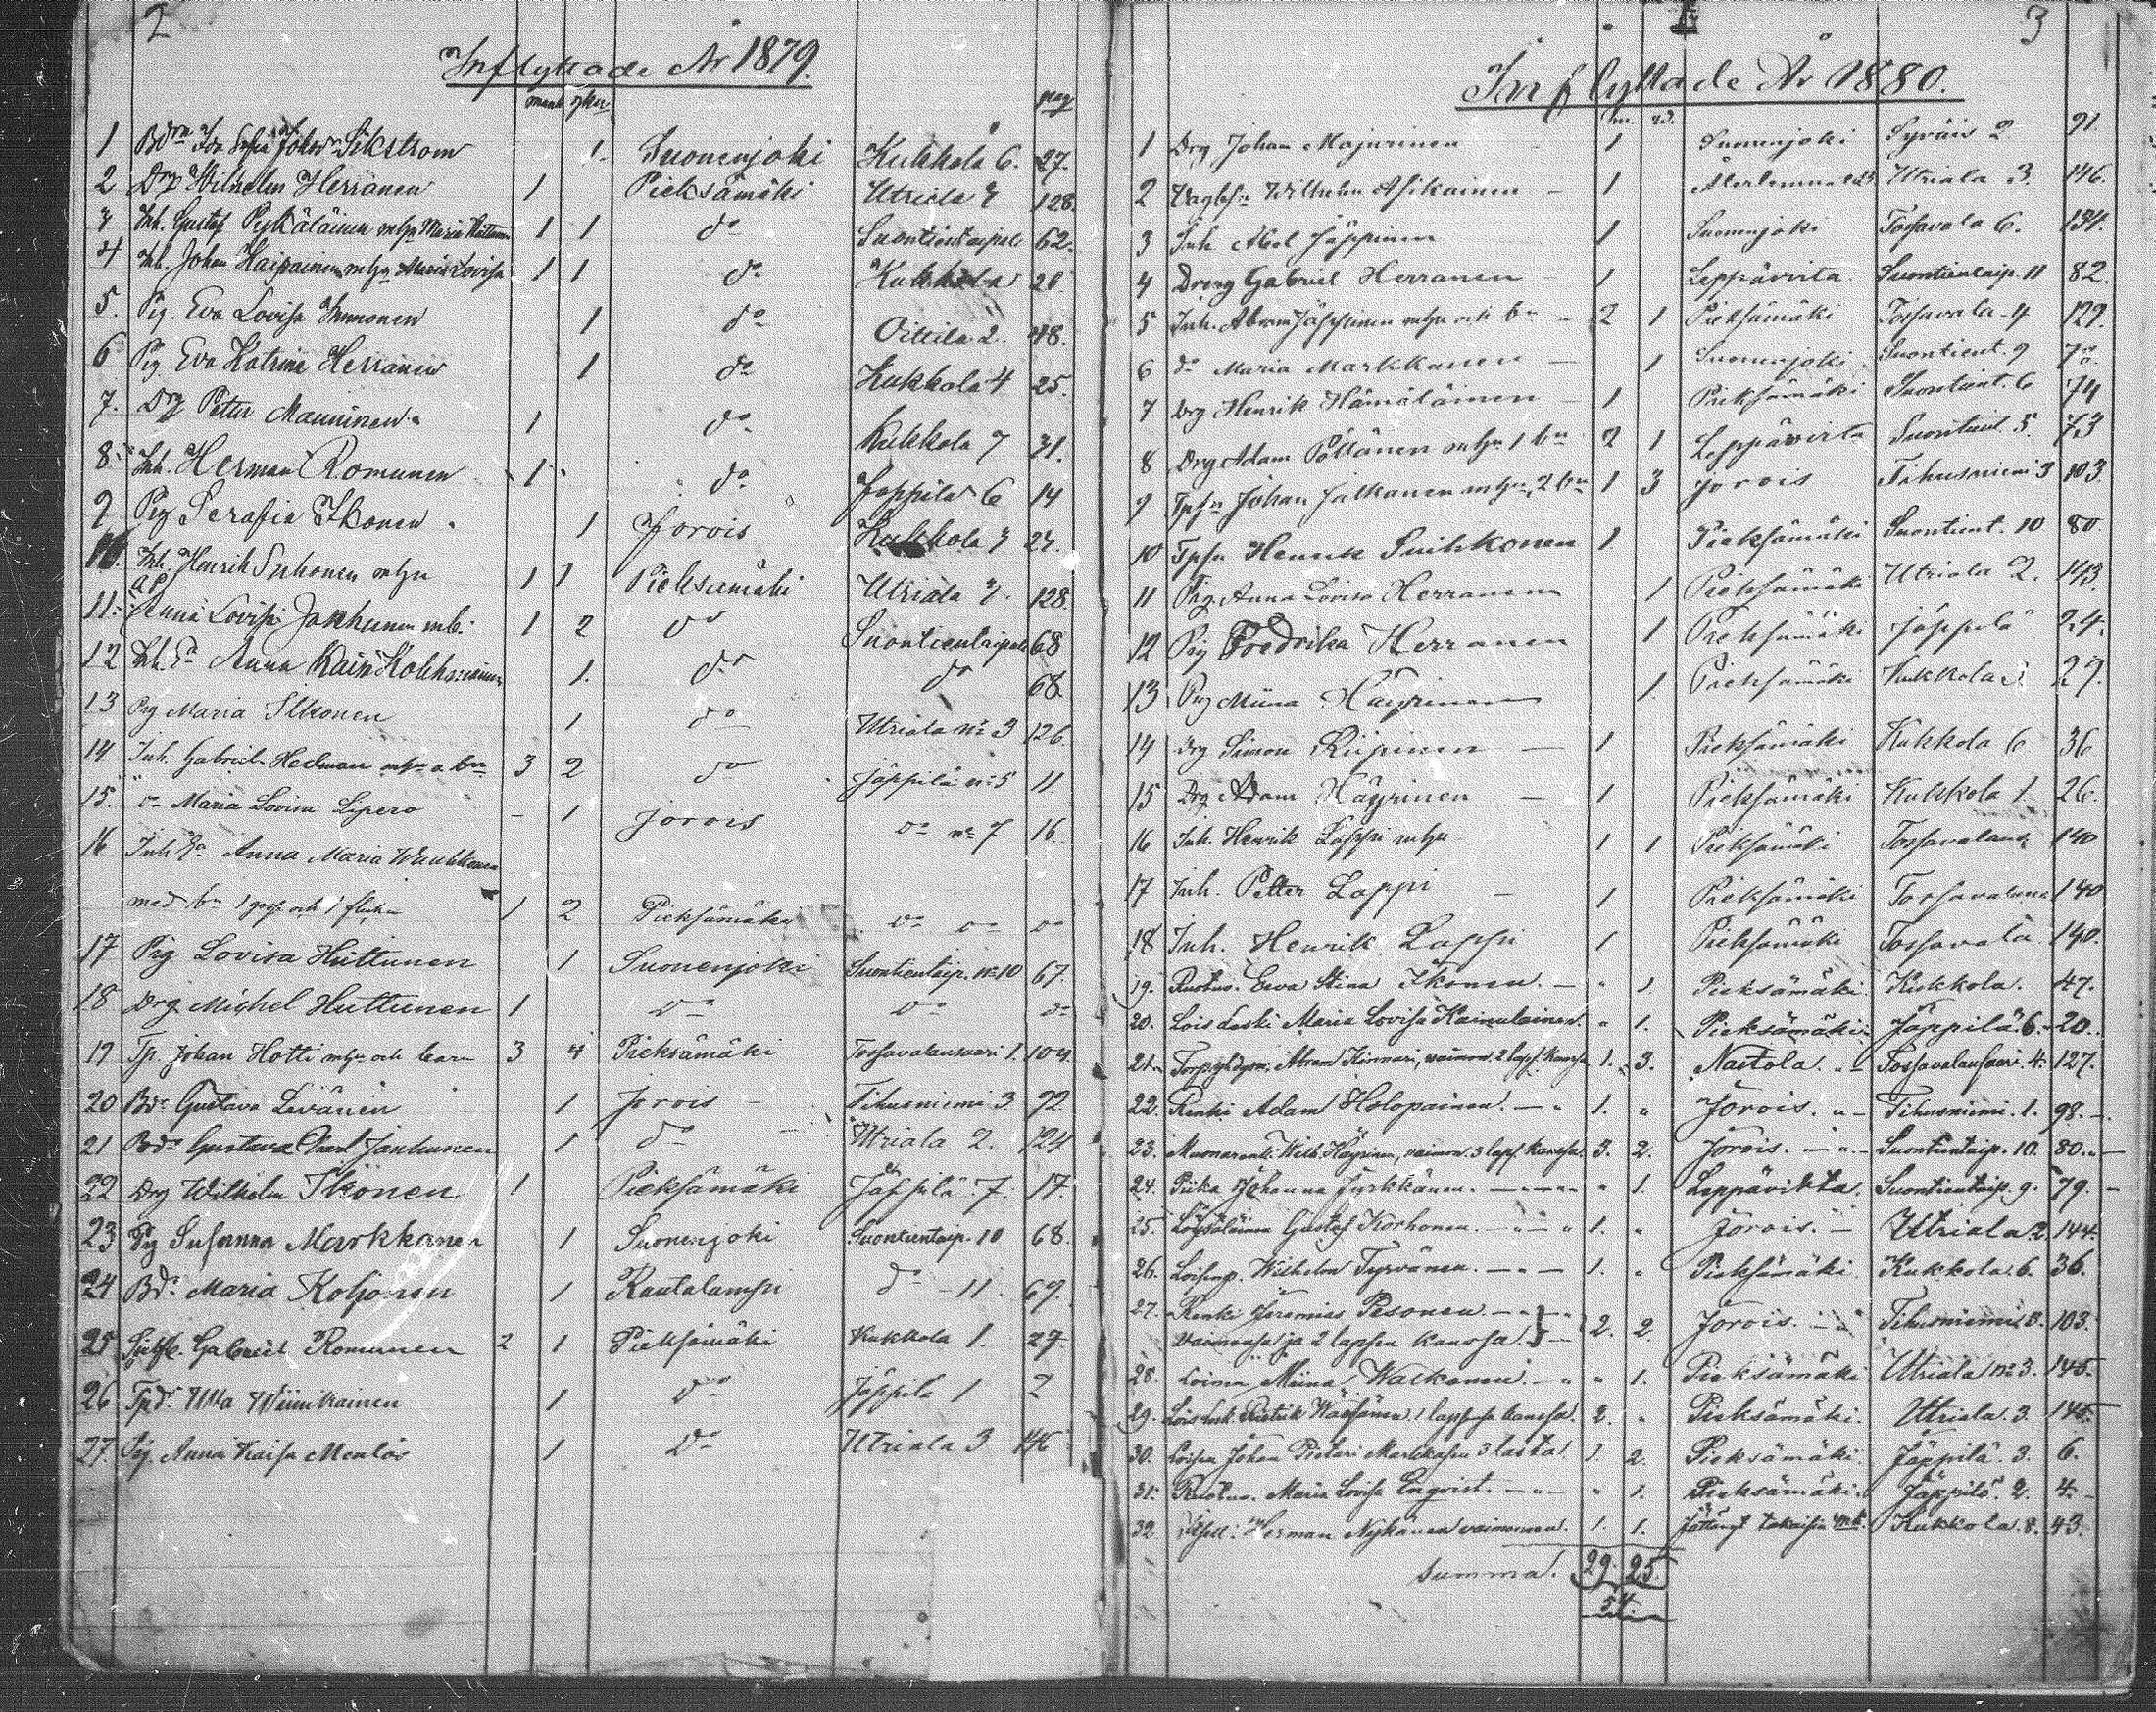 2
Inflyttade År 1879.
mank qkn pag
1 Bdrn Eva Sofia Johan Sikström 1. Suonenjoki Kukkola 6. 27.
2 Drg Wilhelm Herranen 1 Pieksämäki Utriala 128.
Inh. Gustaf Pyykäläinen mhu Maria 1 1 do Suontientaipale 62.
4 Inh. Johan Haipainen mhu Maria Lovisa 1 1 do Kukkola 20
5. Pig. Eva Lovisa Immonen 1 do Oittila 2. 48.
6 Pig Eva Katrina Herranen 1 do Kukkola 4 25.
7. Drg Petter Manninen 1 do Kukkola 7 31.
8. Inh. Herman Romunen 1 do Jäppilä 6 14
9 Pig Serafia Ikonen 1 Jorois Kukkola 27.
10. Inh. Henrik Suhonen mhu 1 1 Pieksämäki Utriala 128.
11. Anna Lovisa Jankunen mb. 1 2 do Suontientaipale 68
12 Inh. Ea Anna Kaisa Kolehmainen 1. do do 68.
13 Pig Maria Ilkonen 1 do Utriala No 3 126.
14 Inh. Gabriel Hedman mhu o. bn 3 2 do Jäppilä No 5 11.
15. do Maria Lovisa Lipero - 1 Jorois do No 7 16.
16 Inh Ea Anna Maria Wauhkonen
med bn 1 goss och 1 flicka 1 2 Pieksämäki do do do
17 Pig Lovisa Huttunen 1 Suonenjoki Suontientaip. No 10 67.
18 Drg Michel Huttunen 1 do do do
19 Tp. Johan Hotti mhu och barn 3 4 Pieksämäki Tossavalansaari 1. 104.
20 Bdr Gustava Levänen 1 Jorois - Tihusniemi 3 92
21 Bdr Gustava Jankunen 1 do Utriala 2. 124
22 Drg Wilhelm Ikonen 1 Pieksämäki Jäppilä 7. 17.
23 Pig Susanna Markkanen 1 Suonenjoki Suontientaip. 10 68.
24 Bdr Maria Koljonen 1 Rautalampi do - 11. 69.
25 Gabriel Romunen 2 1 Pieksämäki Kukkola 1. 27.
26 Tpdr Ulla Wiinikainen 1 do Jäppilä 1 2
27. Pig. Anna Kaisa 1 do Utriala 3 146
3
Inflyttade År 1880.
m. qv.
1 Drg Johan Majurinen 1 Suonenjoki Syväis 2 91.
2 Wilhelm Asikainen - 1 Utriala 3. 146.
3 Inh Abel Jäppinen 1 Suonenjoki Tossavala 6. 134.
4 Dreng Gabriel Herranen - 1 Leppävirta Suontientaip. 11 82.
5 Inh. Abram Jäppinen mhu och bn - 2 1 Pieksämäki Tossavala 4 129.
6 do Maria Markkanen - 1 Suonenjoki Suontient. 9 78.
7 Drg Henrik Hämäläinen - 1 Pieksämäki Suontient. 6 74
8 Drg Adam Pöllänen mhu 1 bn 2 1 Leppävirta Suontient. 5. 73
9 Tpsn Johan Jalkanen mhu, 2 bn 1 3 Jorois Tihusniemi 3 103.
10 Tpsn Henrik Suihkonen 1. Pieksämäki Suontient. 10 80
11 Pig. Anna Lovisa Herranen 1 Pieksämäki Utriala 2. 143.
12 Pig Fredrika Herranen 1 Pieksämäki Jäppilä 24.
13 Pig Miina Häyrinen 1. Pieksämäki Kukkola 29.
14 Drg Simon Riipinen - 1 Pieksämäki Kukkola 6 36
15 Drg Adam Häyrinen - 1 Pieksämäki Kukkola 1. 26.
16 Inh. Henrik Lappi mhu 1 1 Pieksämäki Tossavalans. 140
17 Inh. Petter Lappi - 1 Pieksämäki Tossavalans 140
18 Inh. Henrik Lappi 1 Pieksämäki Tossavala 140.
19. Ruotus. Eeva Stina Ikonen. - " 1. Pieksämäki Kukkola. 47.
20. Lois. Leski Maria Lovisa Kainulainen. " 1. Pieksämäki Jäppilä 6. 20.
21. Abram vaimon. 2 laps. kanssa 1. 3. Nastola. Tossavalansaari 4. 127.
22. Renki Adam Holopainen. - " 1. " Jorois. " - Tihusniemi. 1. 98. -
23. Muonarenki Wilh. Häyrinen, vaimon. 3 laps. kanssa 3. 2. Jorois. Suontientaip. 10. 80. -
24. Piika Johanna Jyrkkänen. " 1. Leppävirta. Suontientaip. 9. 79. -
25. Löysäläinen Gustaf Korhonen. 1. " Jorois. - Utriala 2. 144.
26. Loismp. Wilhelm Tyrvänen. - " - 1. " Pieksämäki. Kukkola. 6. 36.
27. Renki Jeremias Pesonen. - " -
vaimonsa ja 2 lapsen kanssa. 2. 2. Jorois. Tihusniemi 3. 103.
28. Loinen Miina Walkonen. - " 1. Pieksämäki Utriala No 3. 145.
29. Lois. Leski Wäisänen. 1 lapsensa kanssa. 2. " Pieksämäki. Utriala 3. 145.
30. Loinen Johan Pietari Markkasen 3 lasta. 1. 2. Pieksämäki. Jäppilä. 3. 6.
31. Ruotus. Maria Lovisa Enqvist. - " - " 1. Pieksämäki. Jäppilä. 2. 4. -
32. Itsell: Herman Nykänen vaimonsa. 1. 1. takaisin Kukkola. 8. 43.
summa. 29. 25.
54.